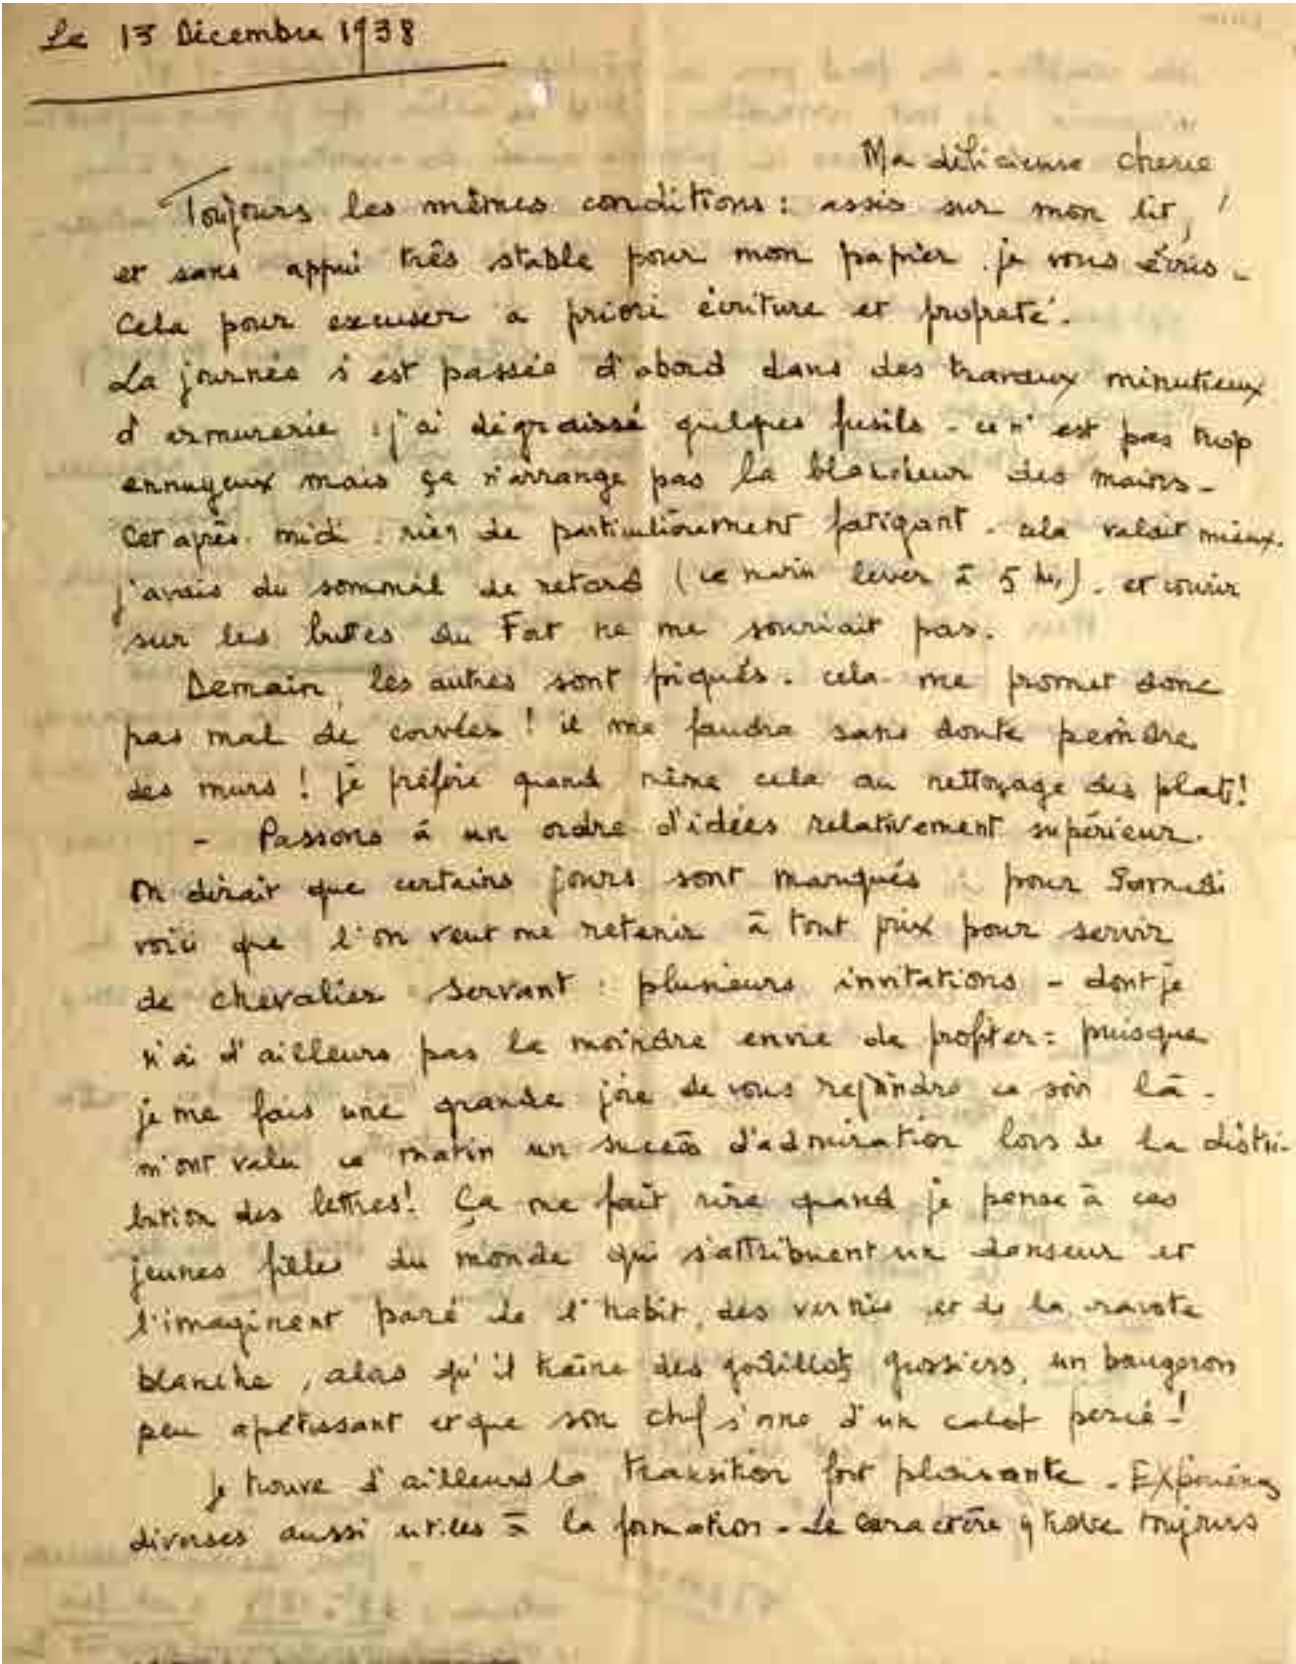 Le 13 Décembre 1938
Ma délicieuse cherie,
Toujours les mêmes conditions : assis sur mon lit,
et sans appui très stable pour mon papier je vous écris -
Cela pour excuser a priori écriture et propreté.
La journée s'est passée d'abord dans des travaux minutieux
d'armurerie : j'ai dégraissé quelques fusils - ce n'est pas trop
ennuyeux mais ça n'arrange pas la blancheur des mains -
Cet après-midi : rien de particulièrement fatigant - cela valait mieux.
j'avais du sommeil de retard (ce matin lever à 5 h) - et courir
sur les buttes du Fort ne me souriait pas.
Demain, les autres sont piqués - cela me promet donc
pas mal de corvées ! il me faudra sans doute peindre
des murs ! je préfère quand même cela au nettoyage des plats !
- Passons à un ordre d'idées relativement supérieur.
On dirait que certains jours sont marqués : pour Samedi
voici que l'on veut me retenir à tout prix pour servir
de chevalier servant : plusieurs invitations - dont je
n'ai d'ailleurs pas la moindre envie de profiter : puisque
je me fais une grande joie de vous rejoindre ce soir là -
m'ont valu ce matin un succès d'admiration lors de la distri-
bution des lettres ! Ça me fait rire quand je pense à ces
jeunes filles du monde qui s'attribuent un danseur et
l'imaginent paré de l'habit, des vernis et de la cravate
blanche, alors qu'il traîne des godillots grossiers, un bourgeron
peu apétissant et que son chef s'orne d'un calot percé - !
je trouve d'ailleurs la transition fort plaisante - Expériences
diverses aussi utiles à la formation - Le caractère y trouve toujours